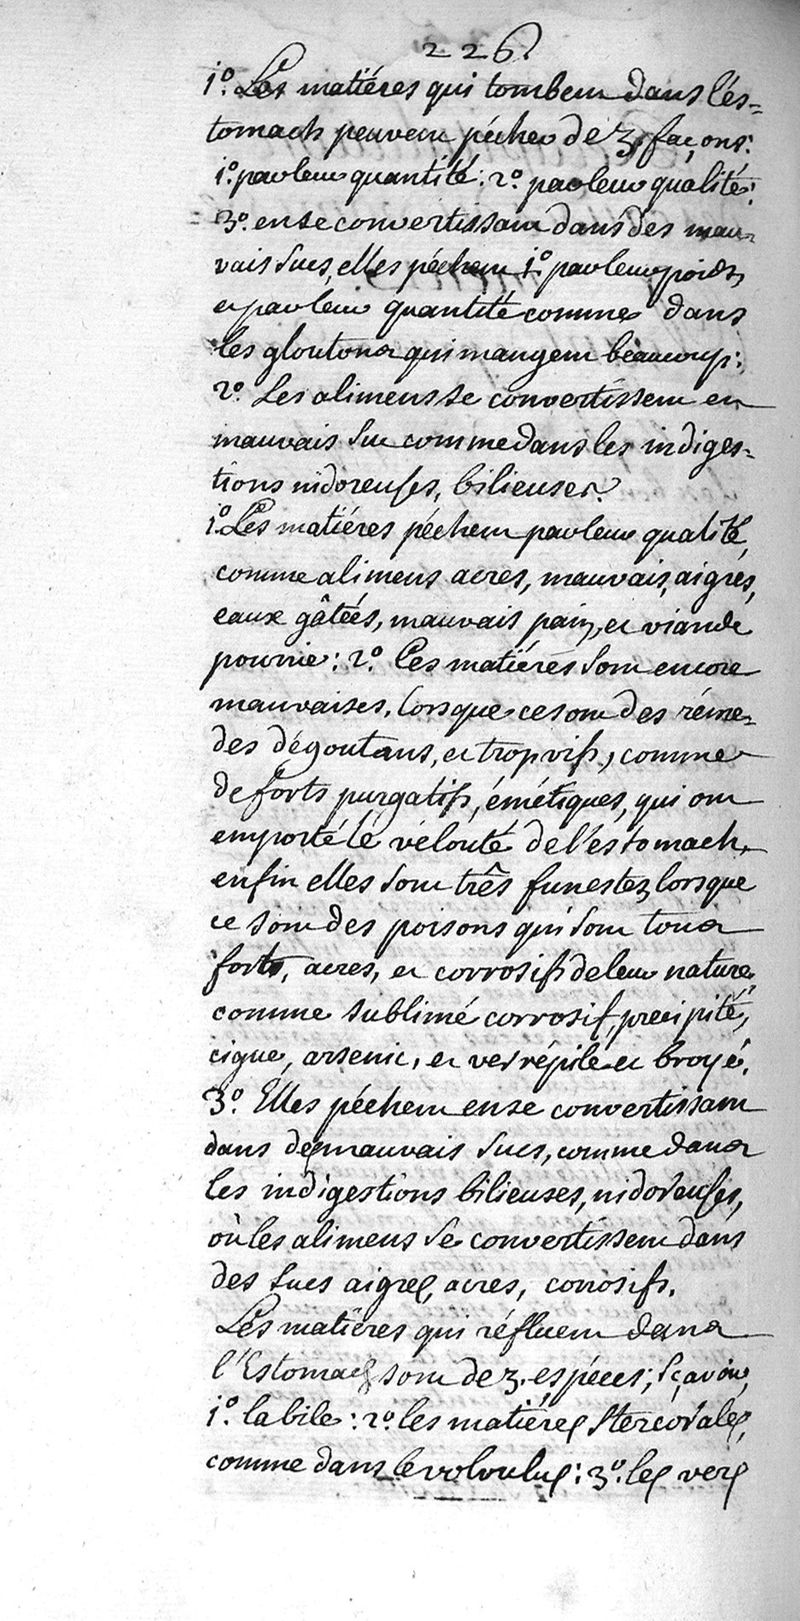 226.
1.° Les matiéres qui tombent dans l'és-
tomach peuvent pécher de 3. façons:
1.° par leur quantité: 2.° par leur qualité:
3.° en se convertissant dans des mau-
vais sucs, elles péchent 1.° par leur poids,
et par leur quantité comme dans
les gloutons qui mangent béaucoup:
2.° Les alimens se convertissent en
mauvais suc comme dans les indiges-
tions nidoreuses, bilieuses.
1.° Les matiéres péchent par leur qualité,
comme alimens acres, mauvais, aigres,
eaux gâtées, mauvais pain, et viande
pourrie: 2.° Les matiéres sont encore
mauvaises, lorsque ce sont des réme-
des dégoutans, et trop vifs, comme
de forts purgatifs, émétiques, qui ont
emporté lé vélouté de l'éstomach,
enfin elles sont très funestes, lorsque
ce sont des poisons qui sont tous
forts, acres, et corrosifs de leur nature,
comme sublimé corrosif, precipité,
cigue, arsenic, et verre pilé et broyé.
3.° Elles péchent en se convertissant
dans des mauvais sucs, comme dans
les indigestions bilieuses, nidoreuses,
où les alimens se convertissent dans
des sucs aigres, acres, corrosifs.
Les matiéres qui réfluent dans
l'Estomach sont de 3. espéces; sçavoir,
1.° la bile: 2.° les matiéres stercorales,
comme dans le volvulus: 3.° les vers